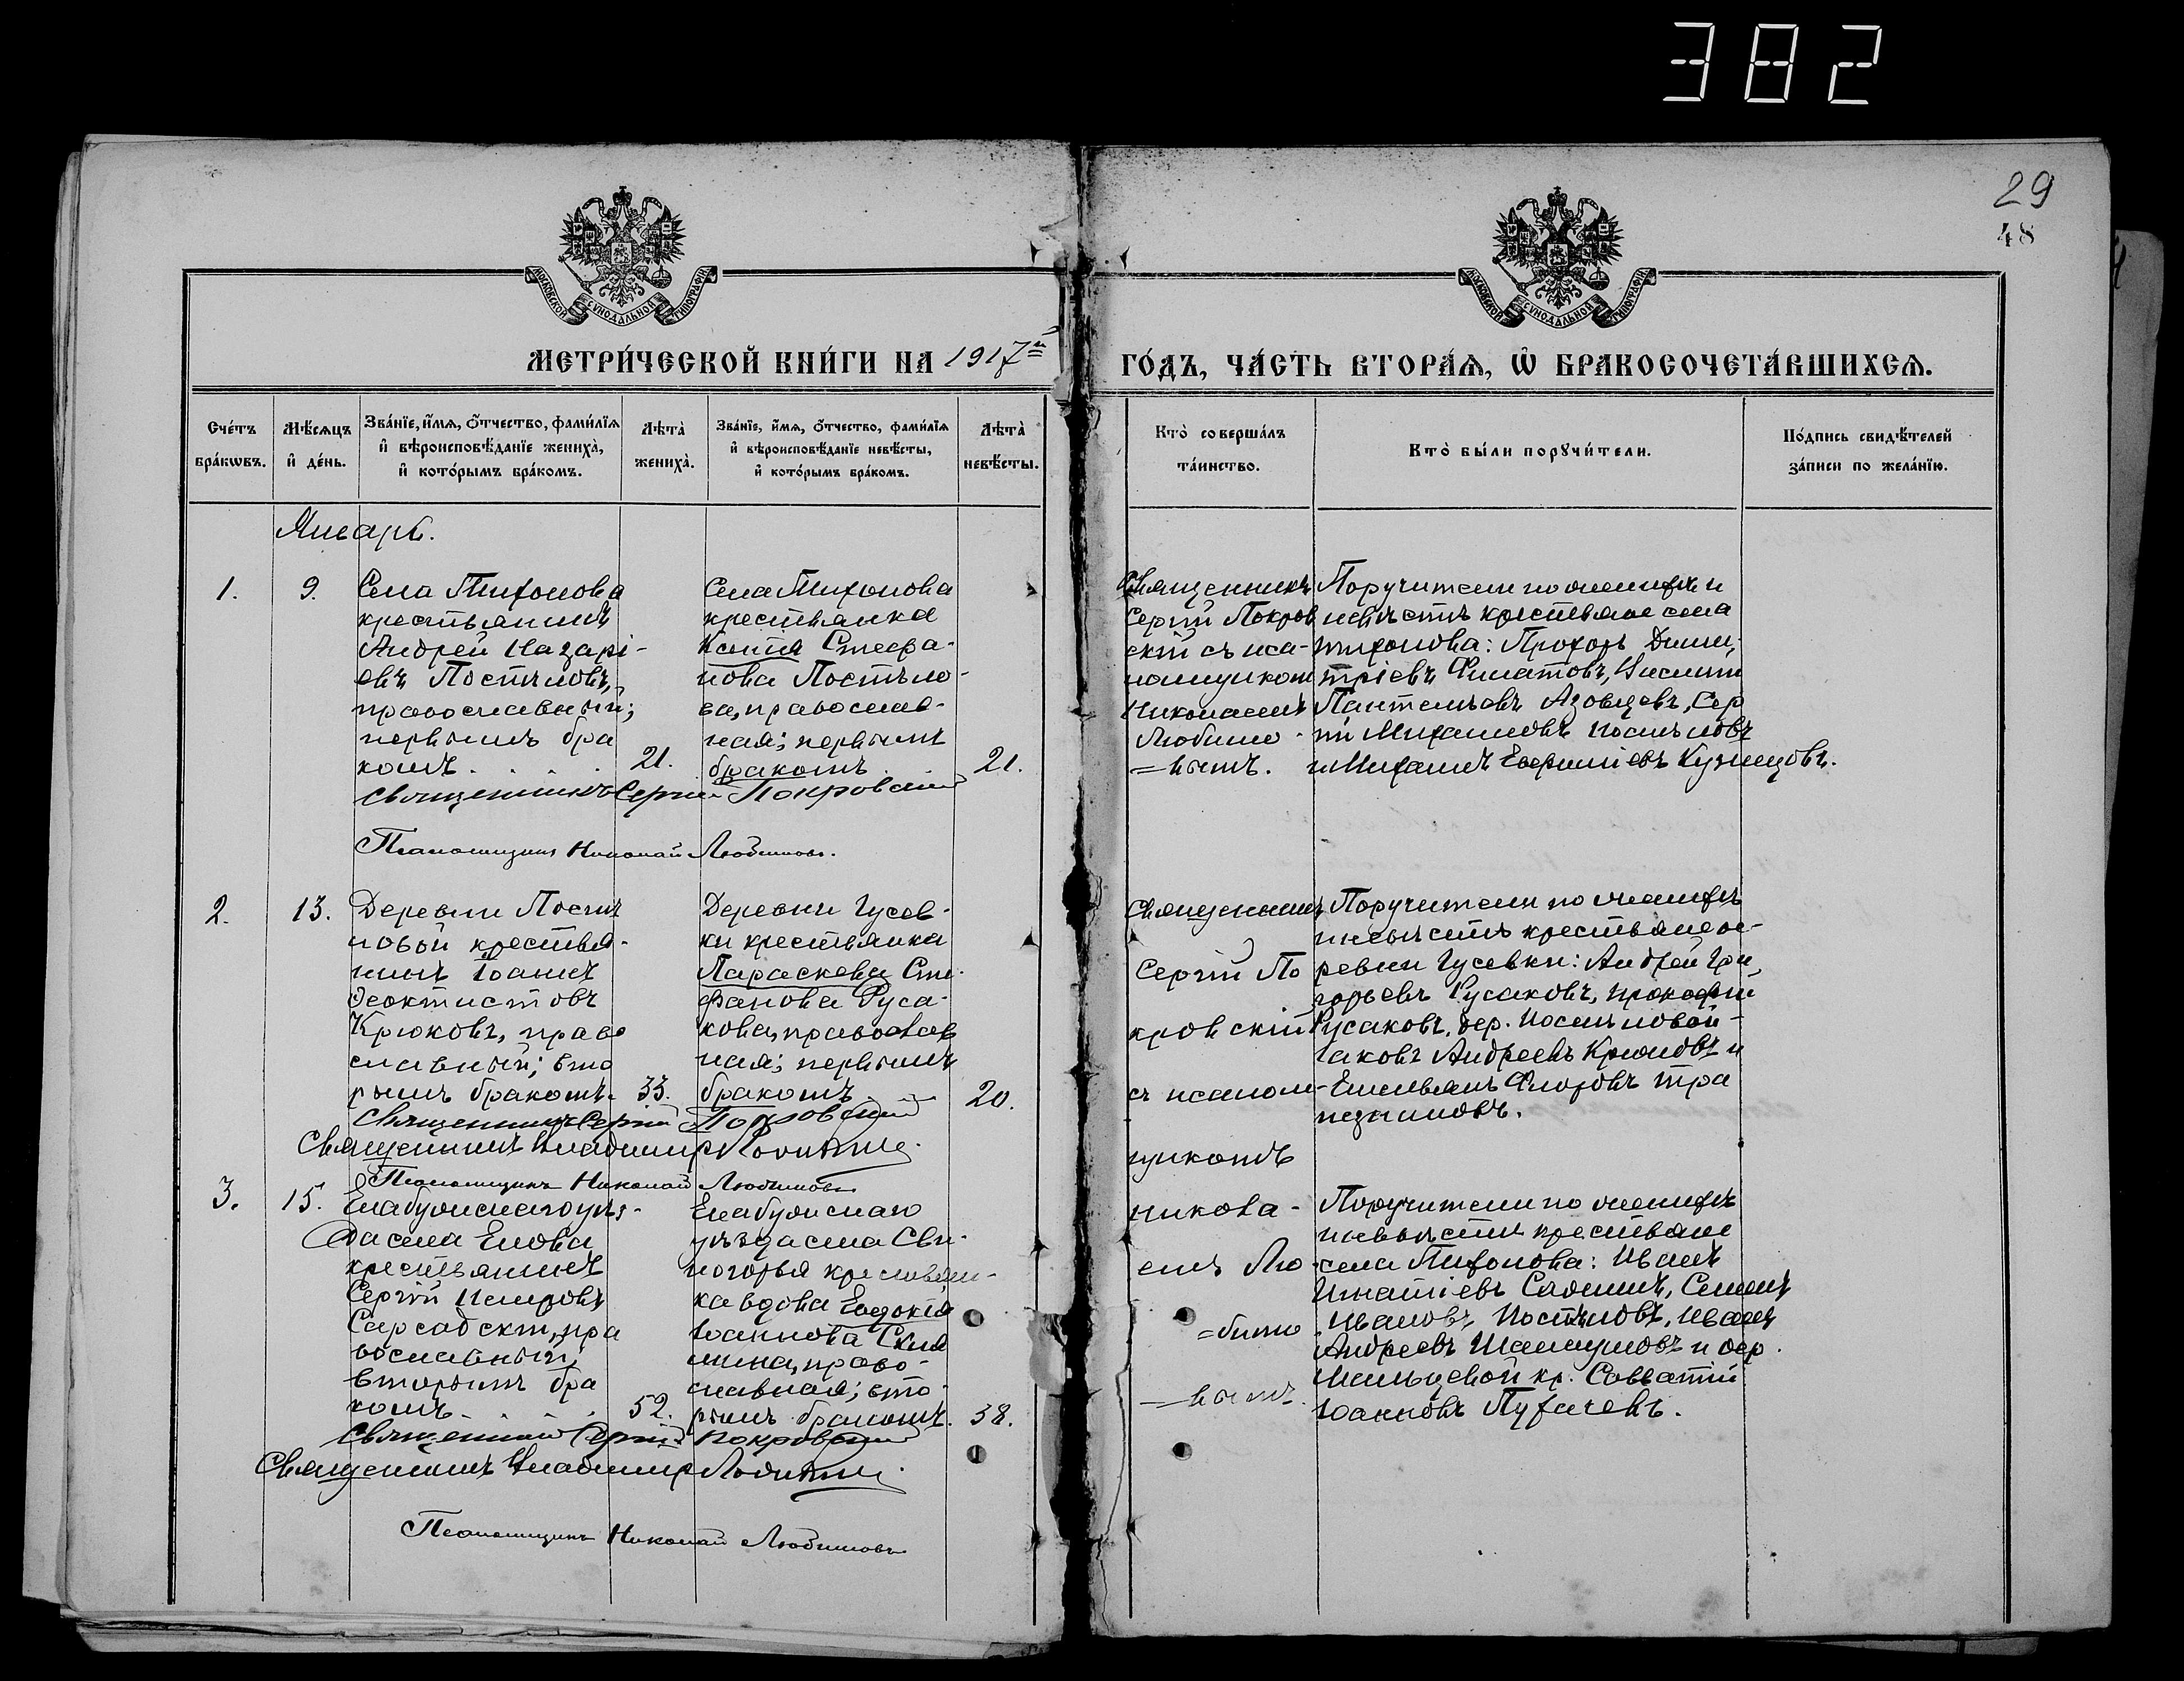 382
29
48
МОСКОВСКОЙ СѴНОДАЛЬНОЙ ТИПОГРАФІИ
МОСКОВСКОЙ СѴНОДАЛЬНОЙ ТИПОГРАФІИ
МЕТРИ́ЧЕСКОЙ КНИ́ГИ НА 1917й
ГО́ДЪ, ЧА́СТЬ ВТОРА́Ѧ, Ѡ҆ БРАКОСОЧЕТА́ВШИХСѦ.
Сче́тъ бра́кѡвъ.
Мѣ́сяцъ и҆ де́нь.
Зва́нїе, и҆́мѧ, ѻ҆́тчество, фами́лїѧ
и҆ вѣроисповѣ́данїе жениха̀,
и҆ кото́рымъ бра́комъ.
Лѣта̀ жениха̀.
Зва́нїе, и҆́мѧ, ѻ҆́тчество, фами́лїѧ
и҆ вѣроисповѣ́данїе невѣ́сты,
и҆ кото́рымъ бра́комъ.
Лѣта̀ невѣ́сты.
Кто̀ соверша́лъ
та́инство.
Кто̀ бы́ли порꙋчи́тели.
По́дпись свидѣ́телей
за́писи по жела́нїю.
Январь.
1.
9.
Села Тихонова
крестьянинъ
Андрей Назарі-
евъ Постѣловъ,
православный;
первымъ бра
комъ
21.
Села Тихонова
крестьянка
Ксенія Стефа-
нова Постѣло-
ва, православ-
ная; первымъ
бракомъ
21.
Священникъ
Сергій Покров
скій съ пса-
ломщикомъ
Николаемъ
Любимо-
=вымъ.
Поручители по женихѣ и
невѣстѣ крестьяне села
Тихонова: Прохоръ Дими-
тріевъ Филатовъ,
Пантелѣевъ Азовцевъ, Сер
гій Михаиловъ Постѣловъ
и Михаилъ Евфиміевъ Кузнецовъ.
Священникъ Сергій Покровскій
Псаломщикъ Николай Любимовъ.
2.
13.
Деревни Постѣ
ловой крестья-
нинъ Іоаннъ
Ѳеоктистовъ
Крюковъ, право
славный; вто
рымъ бракомъ.
33.
Деревни Гусев-
ки крестьянка
Параскева Сте-
фанова Руса-
кова, православ
ная; первымъ
бракомъ
20.
Священникъ
Сергій По
кровскій
съ псалом-
щикомъ
Никола-
емъ Лю-
=бимо
=вымъ.
Поручители по женихѣ
и невѣстѣ крестьяне де-
ревни Гусевки: Андрей Гри
горьевъ Русаковъ, Прокофій
Русаковъ, дер. Постѣловой-
Іаковъ Андреевъ Крюковъ и
Емельянъ Флоровъ Тра
пезниковъ.
Священникъ Сергій Покровскій
Священникъ Владимир
Псаломщикъ Николай Любимовъ
3.
15.
Елабужскаго уѣз-
да села Елова
крестьянинъ
Сергій Петровъ
пра
вославный,
вторымъ бра
комъ
52.
Елабужскаго
уѣзда села Сви-
ногорья крестьян-
ка вдова Евдокія
Іоаннова
право-
славная; вто-
рымъ бракомъ.
38.
Поручители по женихѣ
и невѣстѣ крестьяне
села Тихонова: Иванъ
Игнатіевъ Семенъ
Ивановъ Постѣловъ, Иванъ
Андреевъ и дер.
Мальцевой кр. Савватій
Іоанновъ Пугачевъ.
Священникъ Сергій Покровскій
Священникъ Владимир
Псаломщикъ Николай Любимовъ